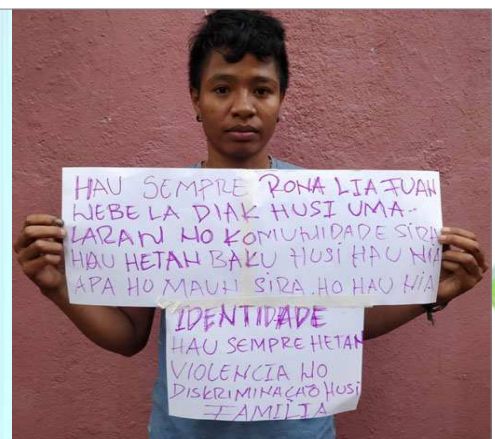 HAU SEMPRE RONA LIA FUAN
NEBE LA DIAK HUSI UMA-
LARAN NO KOMUNIDADE SIRA
HAU HETAN BAKU HUSI HAU NIA
APA HO MAUN SIRA. HO HAU NIA
IDENTIDADE
HAU SEMPRE HETAN
VIOLENCIA NO
DISKRIMINAÇAÕ HUSI
FAMILIA